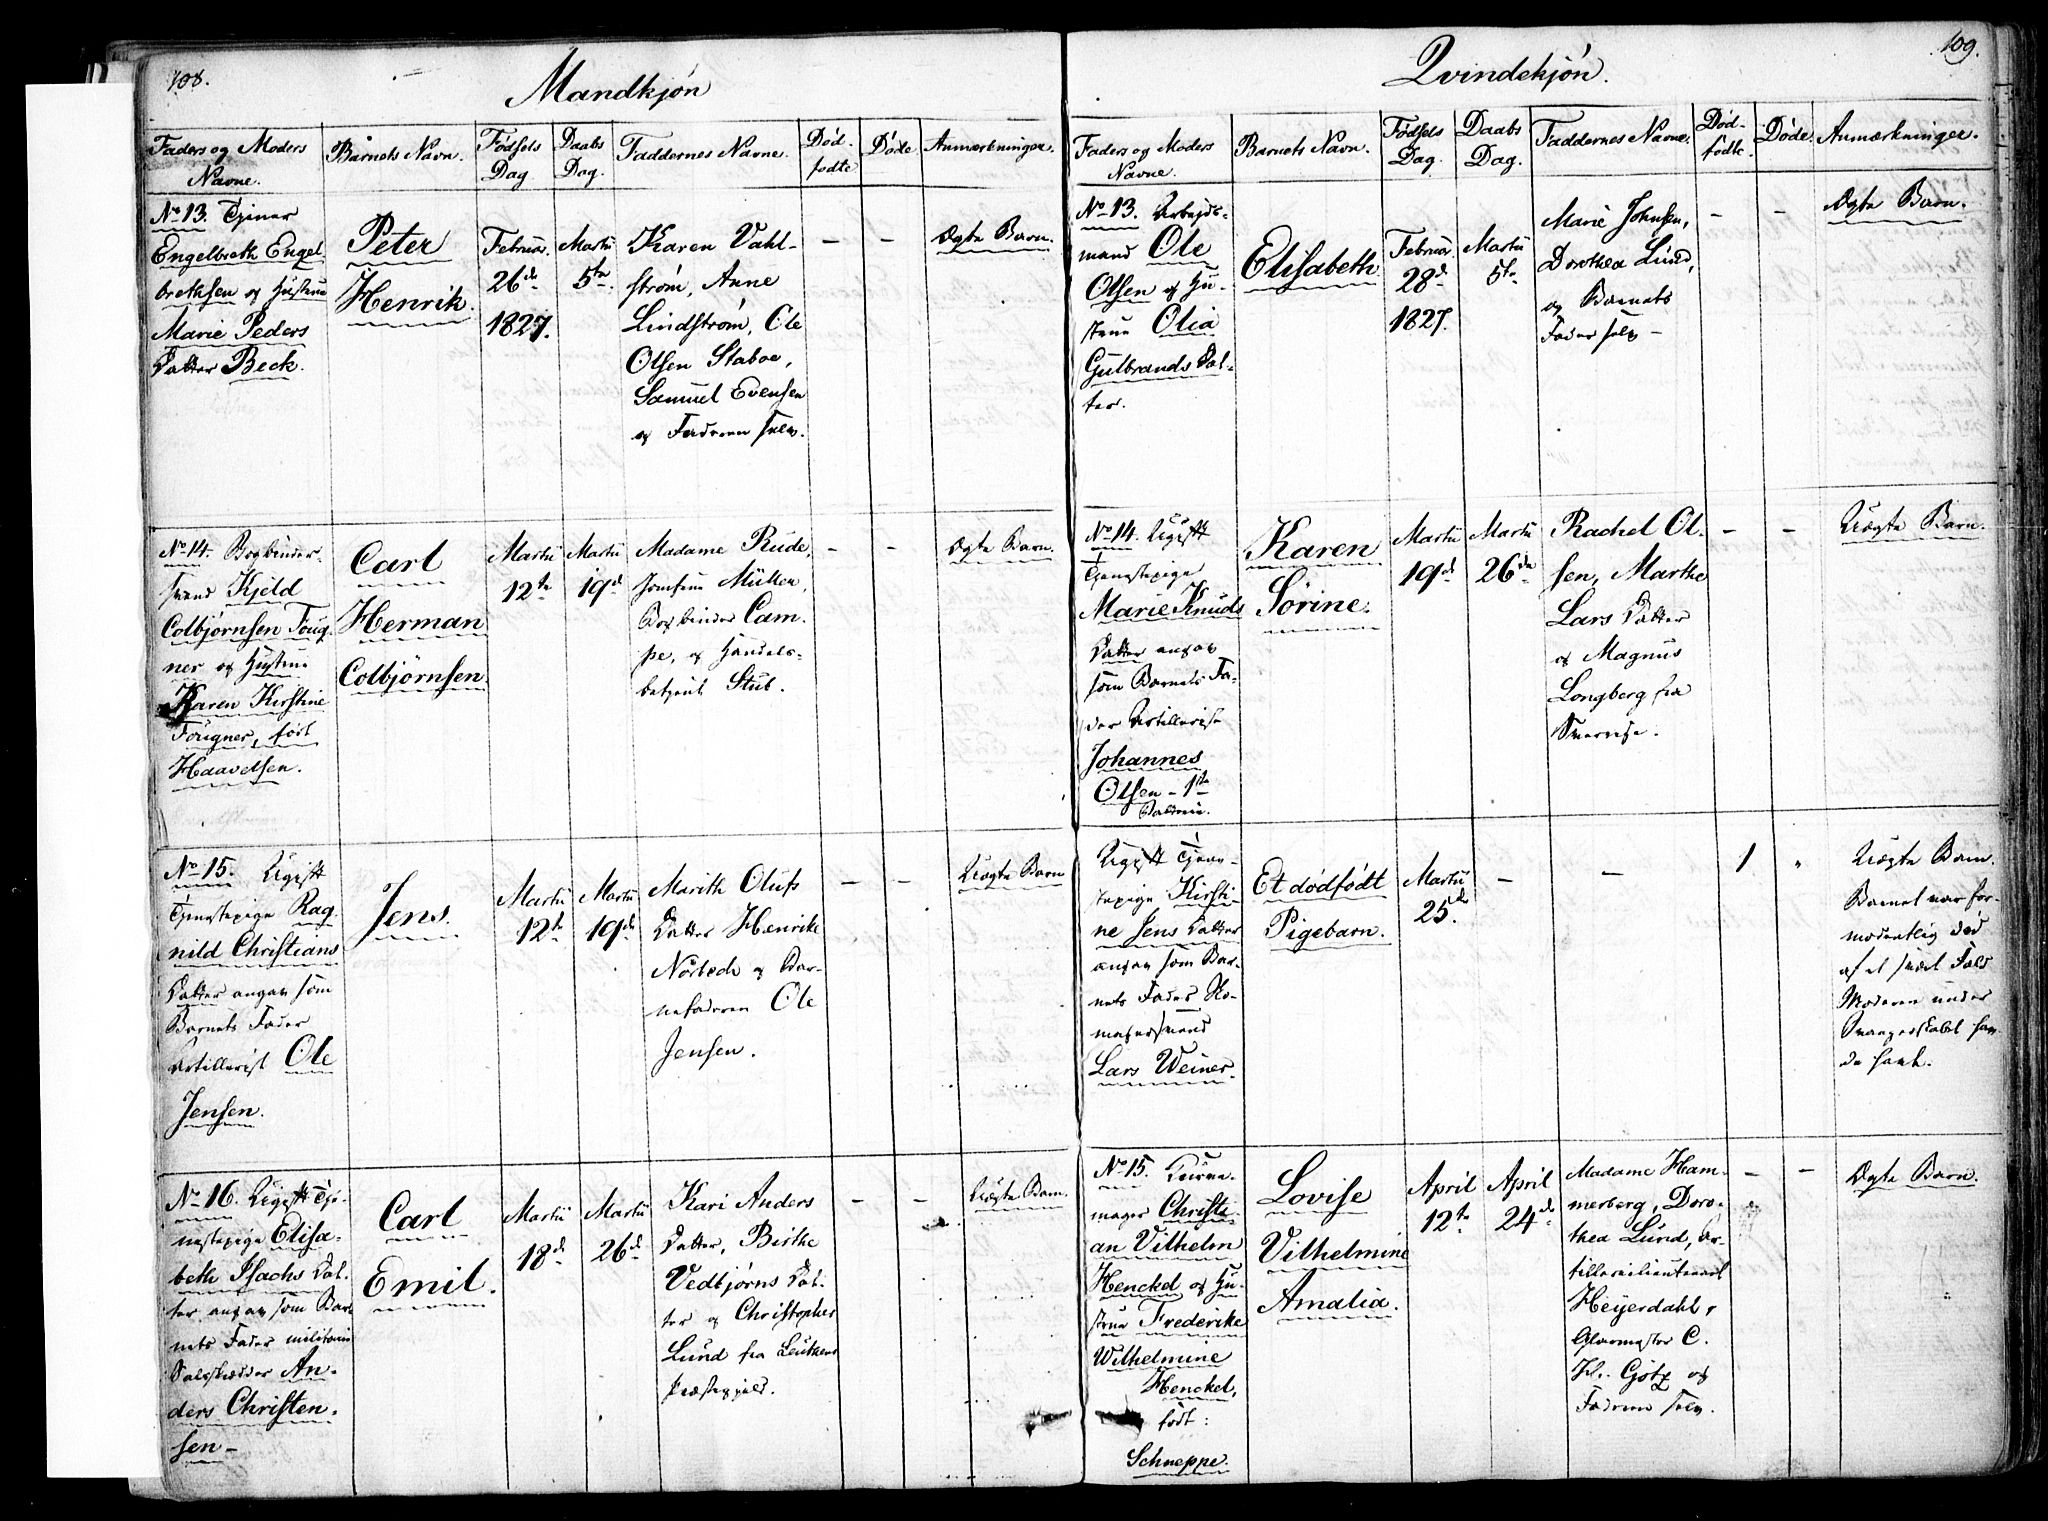 108.
Mandkjön
Faders og Moders
Navne.
Barnets Navn.
Födsels
Dag
Daabs
Dag.
Faddernes Navne.
Död-
födte
Döde
Anmærkninger.
No 13. Tjener
Engelbreth Engel
brethsen og Hustrue
Marie Peders
Datter Beck.
Peter
Henrik.
Februar.
26de
1827.
Martii
5te
Karen Vahl-
ström, Anne
Lindström, Ole
Olsen Staboe,
Samuel Evensen
og Faderen selv.
–
–
Ægte Barn.
No 14. Bogbinder-
svend Kjeld
Colbjörnsen Foug-
ner og Hustrue
Karen Kirstine
Fougner, född
Haavelsen.
Carl
Herman
Colbjörnsen.
Martii
12te
Martii
19de
Madame Rude,
Jomfrue Müller,
Bogbinder Cam-
pe, og Handels-
betjent Stub.
–
–
Ægte Barn.
No 15. Ugift
Tjenestepige Rag-
nild Christians
Datter angav som
Barnets Fader
Artillerist Ole
Jensen.
Jens.
Martii
12te
Martii
19de
Marith Olufs
Datter Henrike
Nörbech og Bar-
nefaderen Ole
Jensen.
–
–
Uægte Barn
No 16. Ugift Tje-
nestepige Elisa-
beth Isachs Dat-
ter angav som Bar-
nets Fader militair
Anders Christen-
sen –
Carl
Emil.
Martii
18de
Martii
26de
Kari Anders
Datter, Birthe
Vedbjörns Dat-
ter og Christopher
Lund fra
Præstegjeld.
–
–
Uægte Barn.
109.
Qvindekjön.
Faders og Moders
Navne.
Barnets Navn.
Födsels
Dag.
Daabs
Dag.
Faddernes Navne.
Död-
födte.
Döde.
Anmærkninger.
No 13. Arbejds-
mand Ole
Olsen og Hu-
strue Olia
Gulbrands Dat-
ter.
Elisabeth
Februar.
28de
1827.
Martii
5te
Marie Johnsen,
Dorothea Lund,
og Barnets
Fader selv –
–
–
Ægte Barn.
No 14. Ugift
Tjenestepige
Marie Knuds
Datter angav
som Barnets Fa-
der Artillerist
Johannes
Olsen – 1ste
Karen
Sörine.
Martii
19de
Martii
26de
Rachel Ol-
sen, Marthe
Lars Datter
og Magnus
Longberg fra
Sverrige.
–
–
Uægte Barn.
Ugift Tjene-
stepige Kirsti-
ne Jens Datter
angav som Bar-
nets Fader Sko-
magersvend
Lars Weiner.
Et dödfödt
Pigebarn.
Martii
25de
–
–
1
"
Uægte Barn.
Barnet var for-
modentlig död
af et svært Fald
Moderen under
Svangerskabet hav-
de havt.
No 15. Kurve-
mager Christi-
an Vilhelm
Henckel og Hu-
strue Frederike
Wilhelmine
Henckel,
född:
Schneppe.
Lovise
Vilhelmine
Amalia.
April
12te
April
24de
Madame Ham-
merberg, Doro-
thea Lund, Ar-
tillerilieutenant
Heijerdahl,
Glarmester C.
H. Götz og
Faderen selv.
–
–
Ægte Barn.